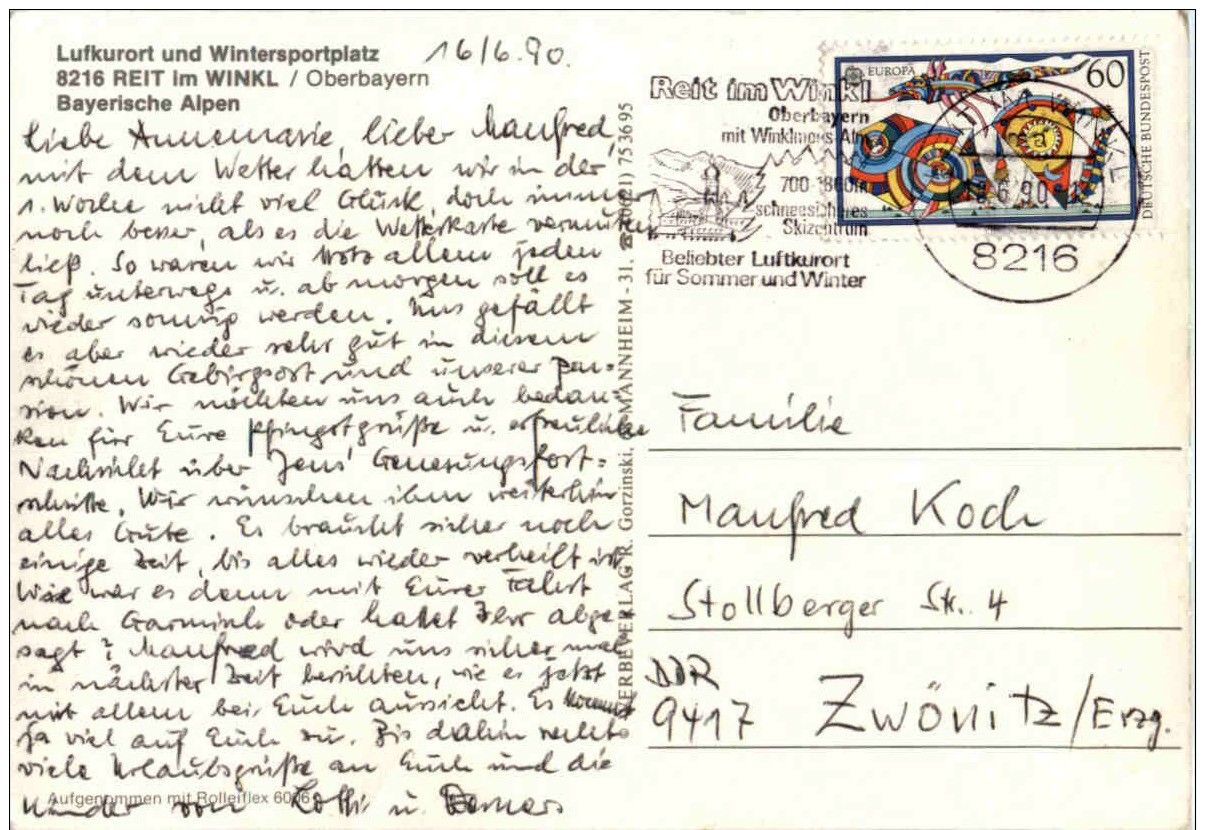 Lufkurort und Wintersportplatz
8216 REIT im WINKL / Oberbayern
Bayerische Alpen
16/6.90.
Liebe Annemarie lieber Manfred,
mit dem Wetter hatten wir in der
1. Woche nicht viel Glück, doch immer
noch besser, als es die Wetterkarte vermuten
ließ. So waren wir trotz allem jeden
Tag unterwegs u. ab morgen soll es
wieder sonnig werden. Uns gefällt
es aber wieder sehr gut in diesem
schönen Gebirgsort und unserer Pen-
sion. Wir möchten uns auch bedan-
ken für Eure Pfingstgrüße u. erfreuliche
Nachricht über Jens' Genesungsfort-
schritte. Wir wünschen ihm weiterhin
alles Gute. Es braucht sicher noch
einige Zeit, bis alles wieder verheilt ist
Wie war es denn mit Eurer Fahrt
nach Garmisch oder hattet Ihr abge-
sagt? Manfred wird uns sicher mal
in nächster Zeit berichten, wie es jetzt
mit allem bei Euch aussieht. Es kommt
ja viel auf Euch zu. Bis dahin recht
viele Urlaubsgrüße an Euch und die
Kinder von u.
Aufgenommen mit Rolleiflex 6006
WERBEVERLAG R. Gorzinski, MANNHEIM - 31, ☎ (0621) 75 36 95
Reit im Winkl
Oberbayern
mit Winklmoos Alm
700-1800m
schneesicheres
Skizentrum
Beliebter Luftkurort
für Sommer und Winter
EUROPA
60
DEUTSCHE BUNDESPOST
6.90
8216
Familie
Manfred Koch
Stollberger Str. 4
DDR
9417 Zwönitz/Erzg.